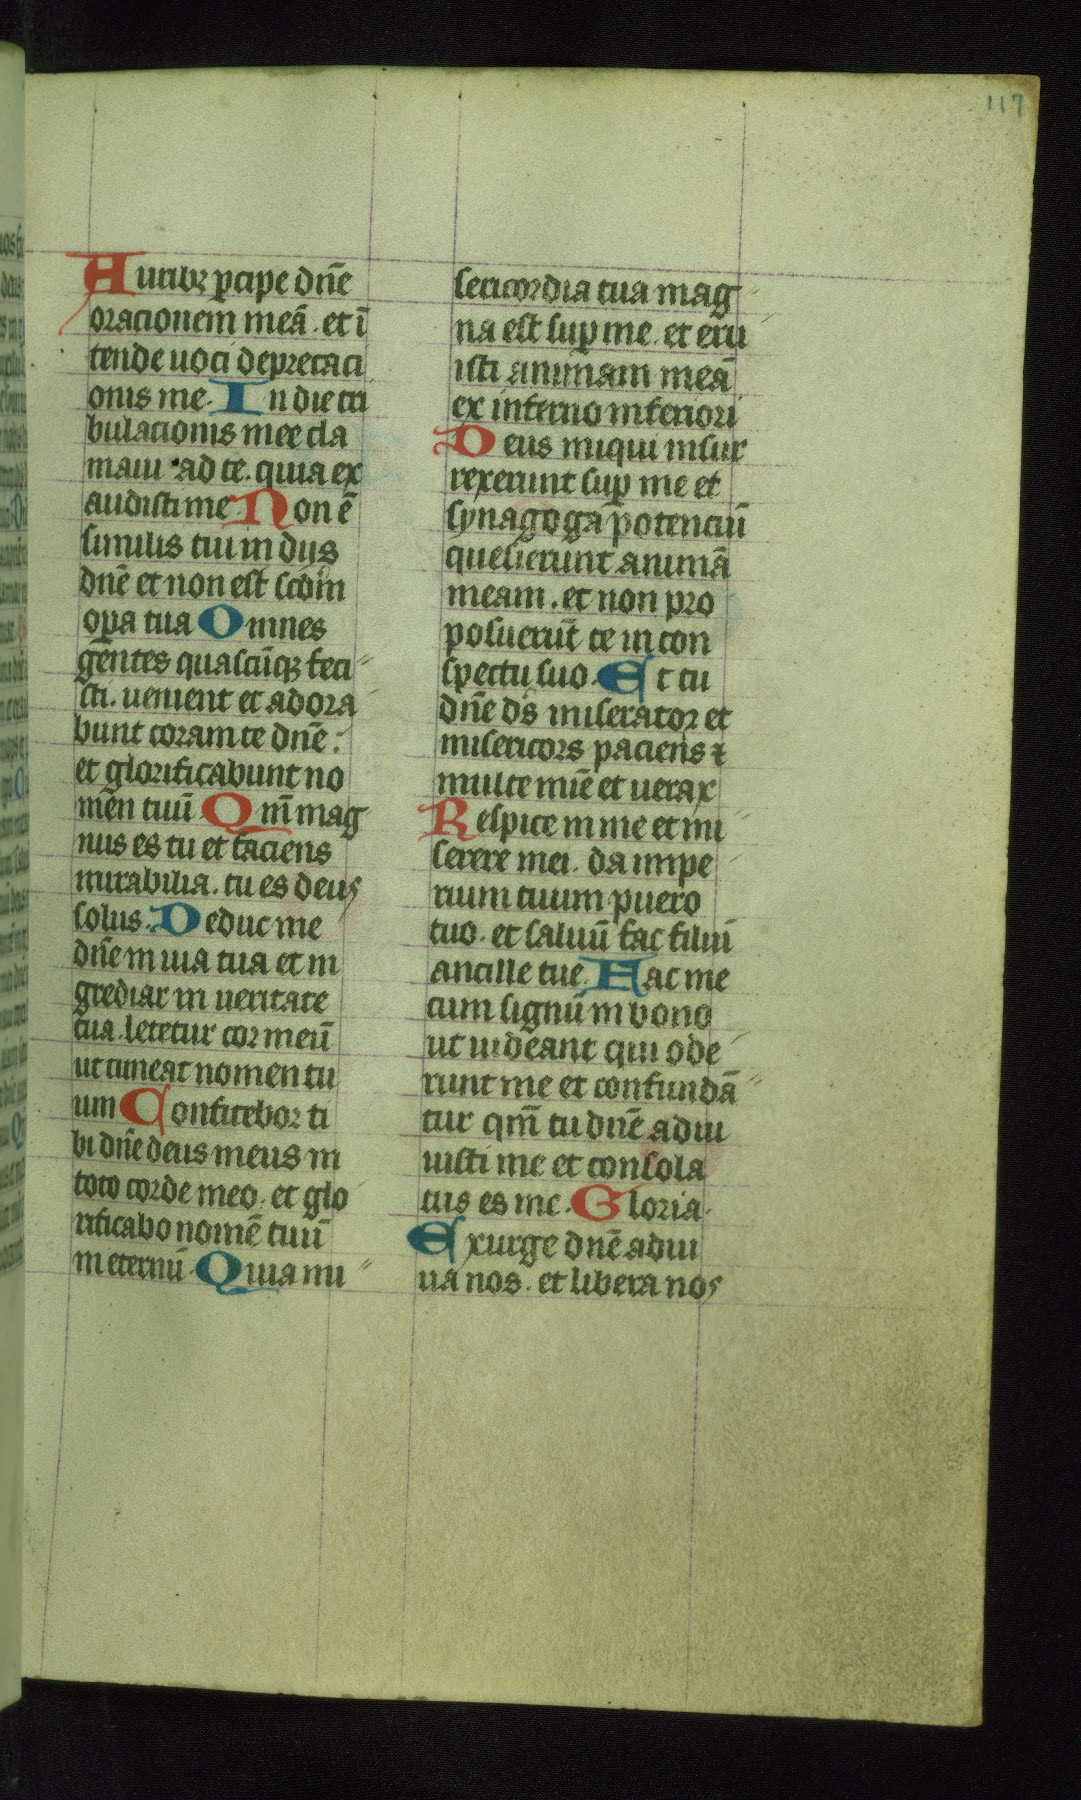 117
Auribꝫ ꝑcipe dn̄e
oracionem meā. et ī
tende uoci deprecaci
onis me. In die tri
bulacionis mee cla
maui ad te. quia ex
audisti me Non ē
similis tui in dijs
dnē et non est scdm̄
oꝑa tua Omnes
gentes quascūqꝫ feci
sti. uenient et adora
bunt coram te dnē:
et glorificabunt no
men tuū Qm̄ mag
nus es tu et faciens
mirabilia. tu es deus
solus. Deduc me
dn̄e in uia tua et in
grediar in ueritate
tua. letetur cor meū
ut timeat nomen tu
um Confitebor ti
bi dn̄e deus meus in
toto corde meo. et glo
rificabo nomē tuū
in eternū. Quia mi
sericordia tua mag
na est suꝑ me. et eru
isti animam meā
ex inferno inferiori
Deus iniqui insur
rexerunt suꝑ me et
synagoga potenciū
quesierunt animā
meam. et non pro
posuerūt te in con
spectu suo. Et tu
dn̄e ds̄ miserator et
misericors paciens ⁊
multe mīe et uerax
Respice in me et mi
serere mei. da impe
rium tuum puero
tuo. et saluū fac filiū
ancille tue. Fac me
cum signū in bono
ut uideant qui ode
runt me et confundā
tur qm̄ tu dn̄e adiu
uisti me et consola
tus es me. Gloria.
Exurge dn̄e adiu
ua nos. et libera nos